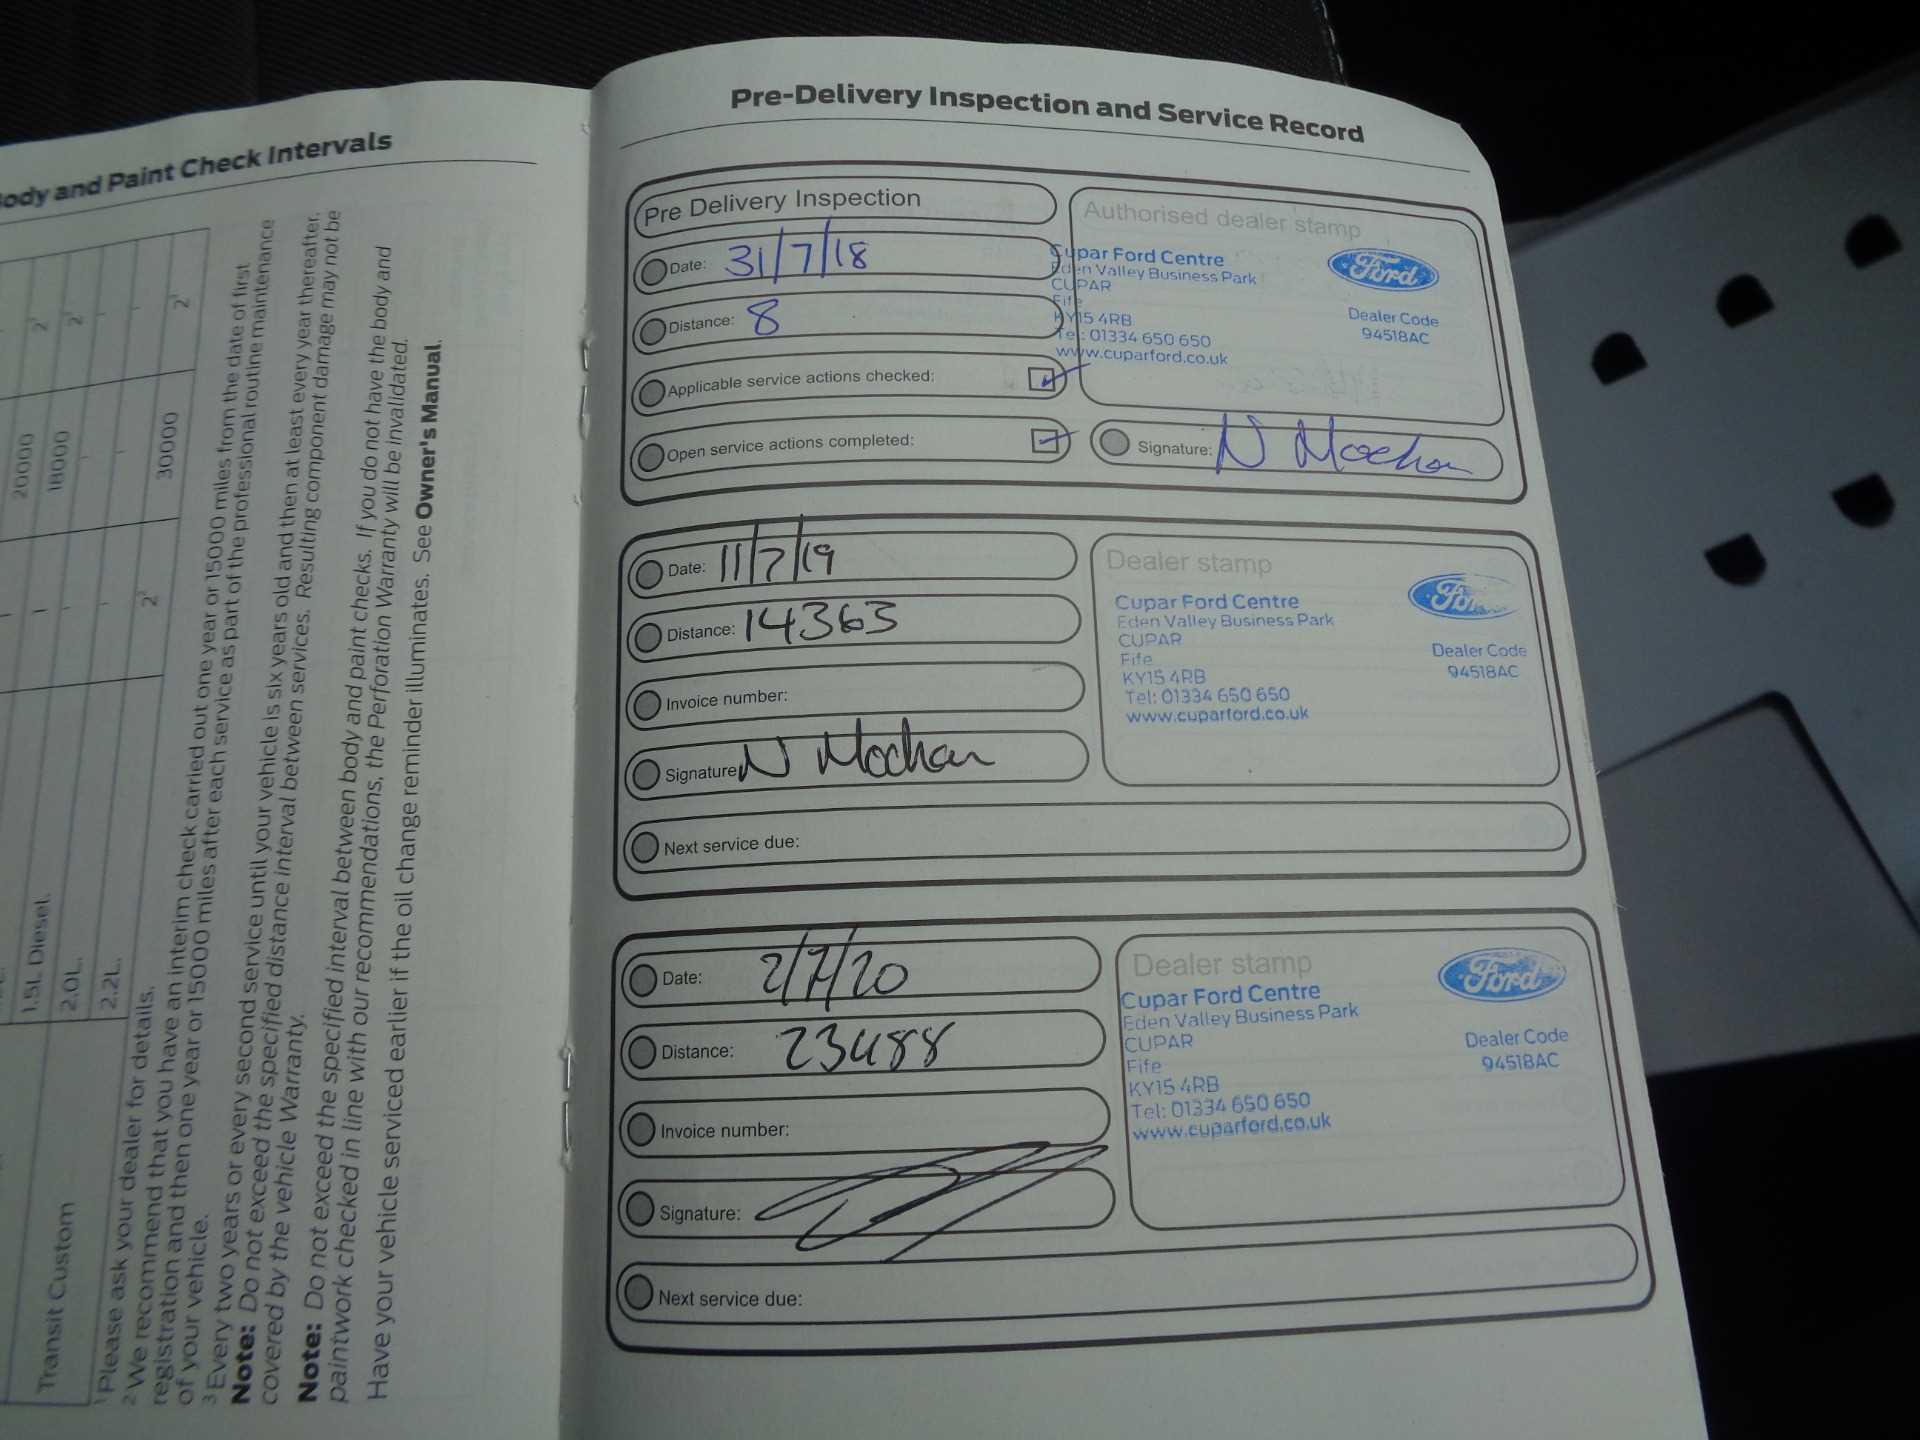 Body and Paint Check Intervals
20000
2¹
1.5L Diesel.
1
18000
2¹
2.0L.
2.2L.
Transit Custom
2³
30000
2¹
¹ Please ask your dealer for details.
² We recommend that you have an interim check carried out one year or 15000 miles from the date of first
registration and then one year or 15000 miles after each service as part of the professional routine maintenance
of your vehicle.
³ Every two years or every second service until your vehicle is six years old and then at least every year thereafter.
Note: Do not exceed the specified distance interval between services. Resulting component damage may not be
covered by the vehicle Warranty.
Note: Do not exceed the specified interval between body and paint checks. If you do not have the body and
paintwork checked in line with our recommendations, the Perforation Warranty will be invalidated.
Have your vehicle serviced earlier if the oil change reminder illuminates. See Owner's Manual.
Pre-Delivery Inspection and Service Record
Pre Delivery Inspection
Date: 31/7/18
Distance: 8
Applicable service actions checked:
Open service actions completed:
Authorised dealer stamp
Cupar Ford Centre
Eden Valley Business Park
CUPAR
Fife
KY15 4RB
Tel: 01334 650 650
www.cuparford.co.uk
Ford
Dealer Code
94518AC
Signature: N Mochan
Date: 11/7/19
Distance: 14363
Invoice number:
Signature N Mochan
Next service due:
Dealer stamp
Cupar Ford Centre
Eden Valley Business Park
CUPAR
Fife
KY15 4RB
Tel: 01334 650 650
www.cuparford.co.uk
Ford
Dealer Code
94518AC
Date: 2/7/20
Distance: 23488
Invoice number:
Signature:
Next service due:
Dealer stamp
Cupar Ford Centre
Eden Valley Business Park
CUPAR
Fife
KY15 4RB
Tel: 01334 650 650
www.cuparford.co.uk
Ford
Dealer Code
94518AC